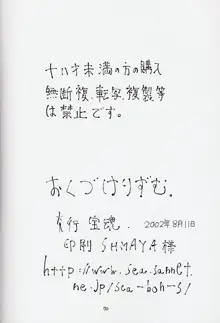 十八才未満の方の購入
無断複、転写、複製等
は禁止です。
おくづけりずむ.
発行 宝魂. 2002年8月11日
印刷 SHMAYA様
http://www.sea.sannet.
ne.jp/sea-boh-s/